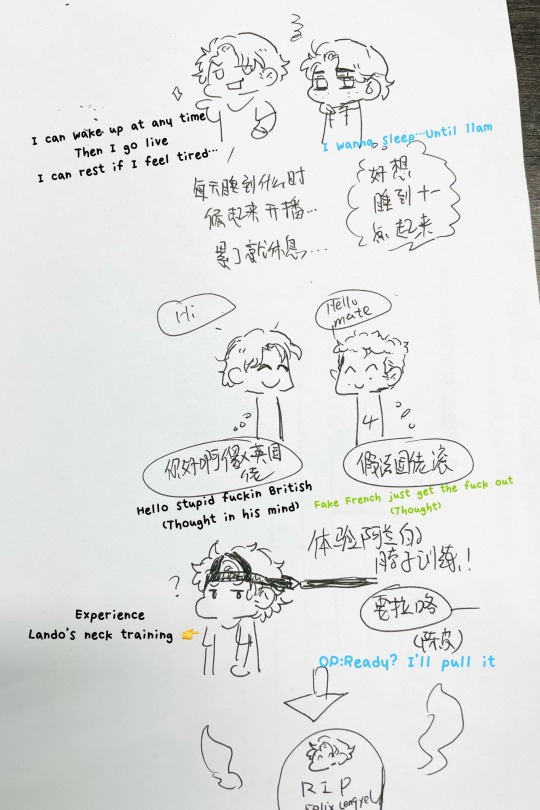 I can wake up at any time
Then I go live
I can rest if I feel tired…
I wanna sleep…Until 11am
每天睡到什么时
候起来开播…
累了就休息…
好想
睡到十一
点起来
Hi
Hello
mate
4
你好啊傻X英国
佬
假法国佬滚
Hello stupid fuckin British
(Thought in his mind)
Fake French just get the fuck out
(Thought)
体验阿兰的
脖子训练!
?
要拉咯
(陈皮)
Experience
Lando's neck training 👉
OP:Ready? I'll pull it
RIP
Felix Lengyel